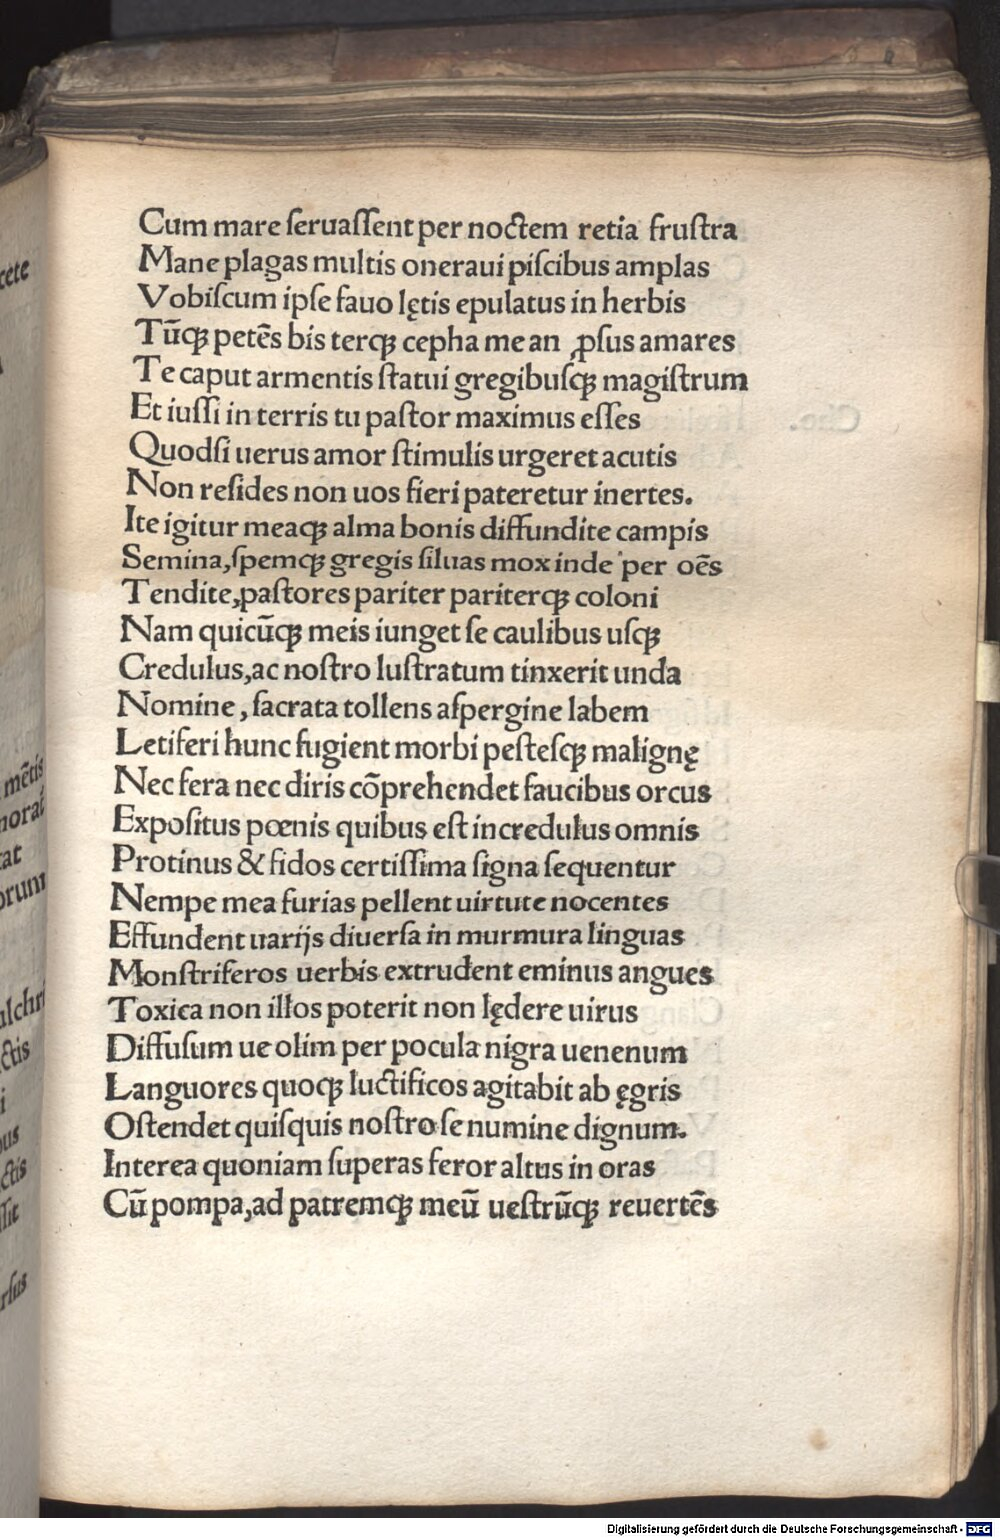 Cum mare ſeruaſſent per noctem retia fruſtra
Mane plagas multis oneraui piſcibus amplas
Vobiſcum ipſe fauo lętis epulatus in herbis
Tūcꝫ petēs bis tercꝫ cepha me an ꝓſus amares
Te caput armentis ſtatui gregibuſcꝫ magiſtrum
Et iuſſi in terris tu paſtor maximus eſſes
Quodſi uerus amor ſtimulis urgeret acutis
Non reſides non uos fieri pateretur inertes.
Ite igitur meacꝫ alma bonis diffundite campis
Semina, ſpemcꝫ gregis ſiluas mox inde per oēs
Tendite, paſtores pariter paritercꝫ coloni
Nam quicūcꝫ meis iunget ſe caulibus uſcꝫ
Credulus, ac noſtro luſtratum tinxerit unda
Nomine, ſacrata tollens aſpergine labem
Letiferi hunc fugient morbi peſteſcꝫ malignę
Nec fera nec diris cōprehendet faucibus orcus
Expoſitus pœnis quibus eſt incredulus omnis
Protinus & fidos certiſſima ſigna ſequentur
Nempe mea furias pellent uirtute nocentes
Effundent uarijs diuerſa in murmura linguas
Monſtriferos uerbis extrudent eminus angues
Toxica non illos poterit non lędere uirus
Diffuſum ue olim per pocula nigra uenenum
Languores quocꝫ luctificos agitabit ab ęgris
Oſtendet quiſquis noſtro ſe numine dignum.
Interea quoniam ſuperas feror altus in oras
Cū pompa, ad patremcꝫ meū ueſtrūcꝫ reuertēs
Digitalisierung gefördert durch die Deutsche Forschungsgemeinschaft - DFG